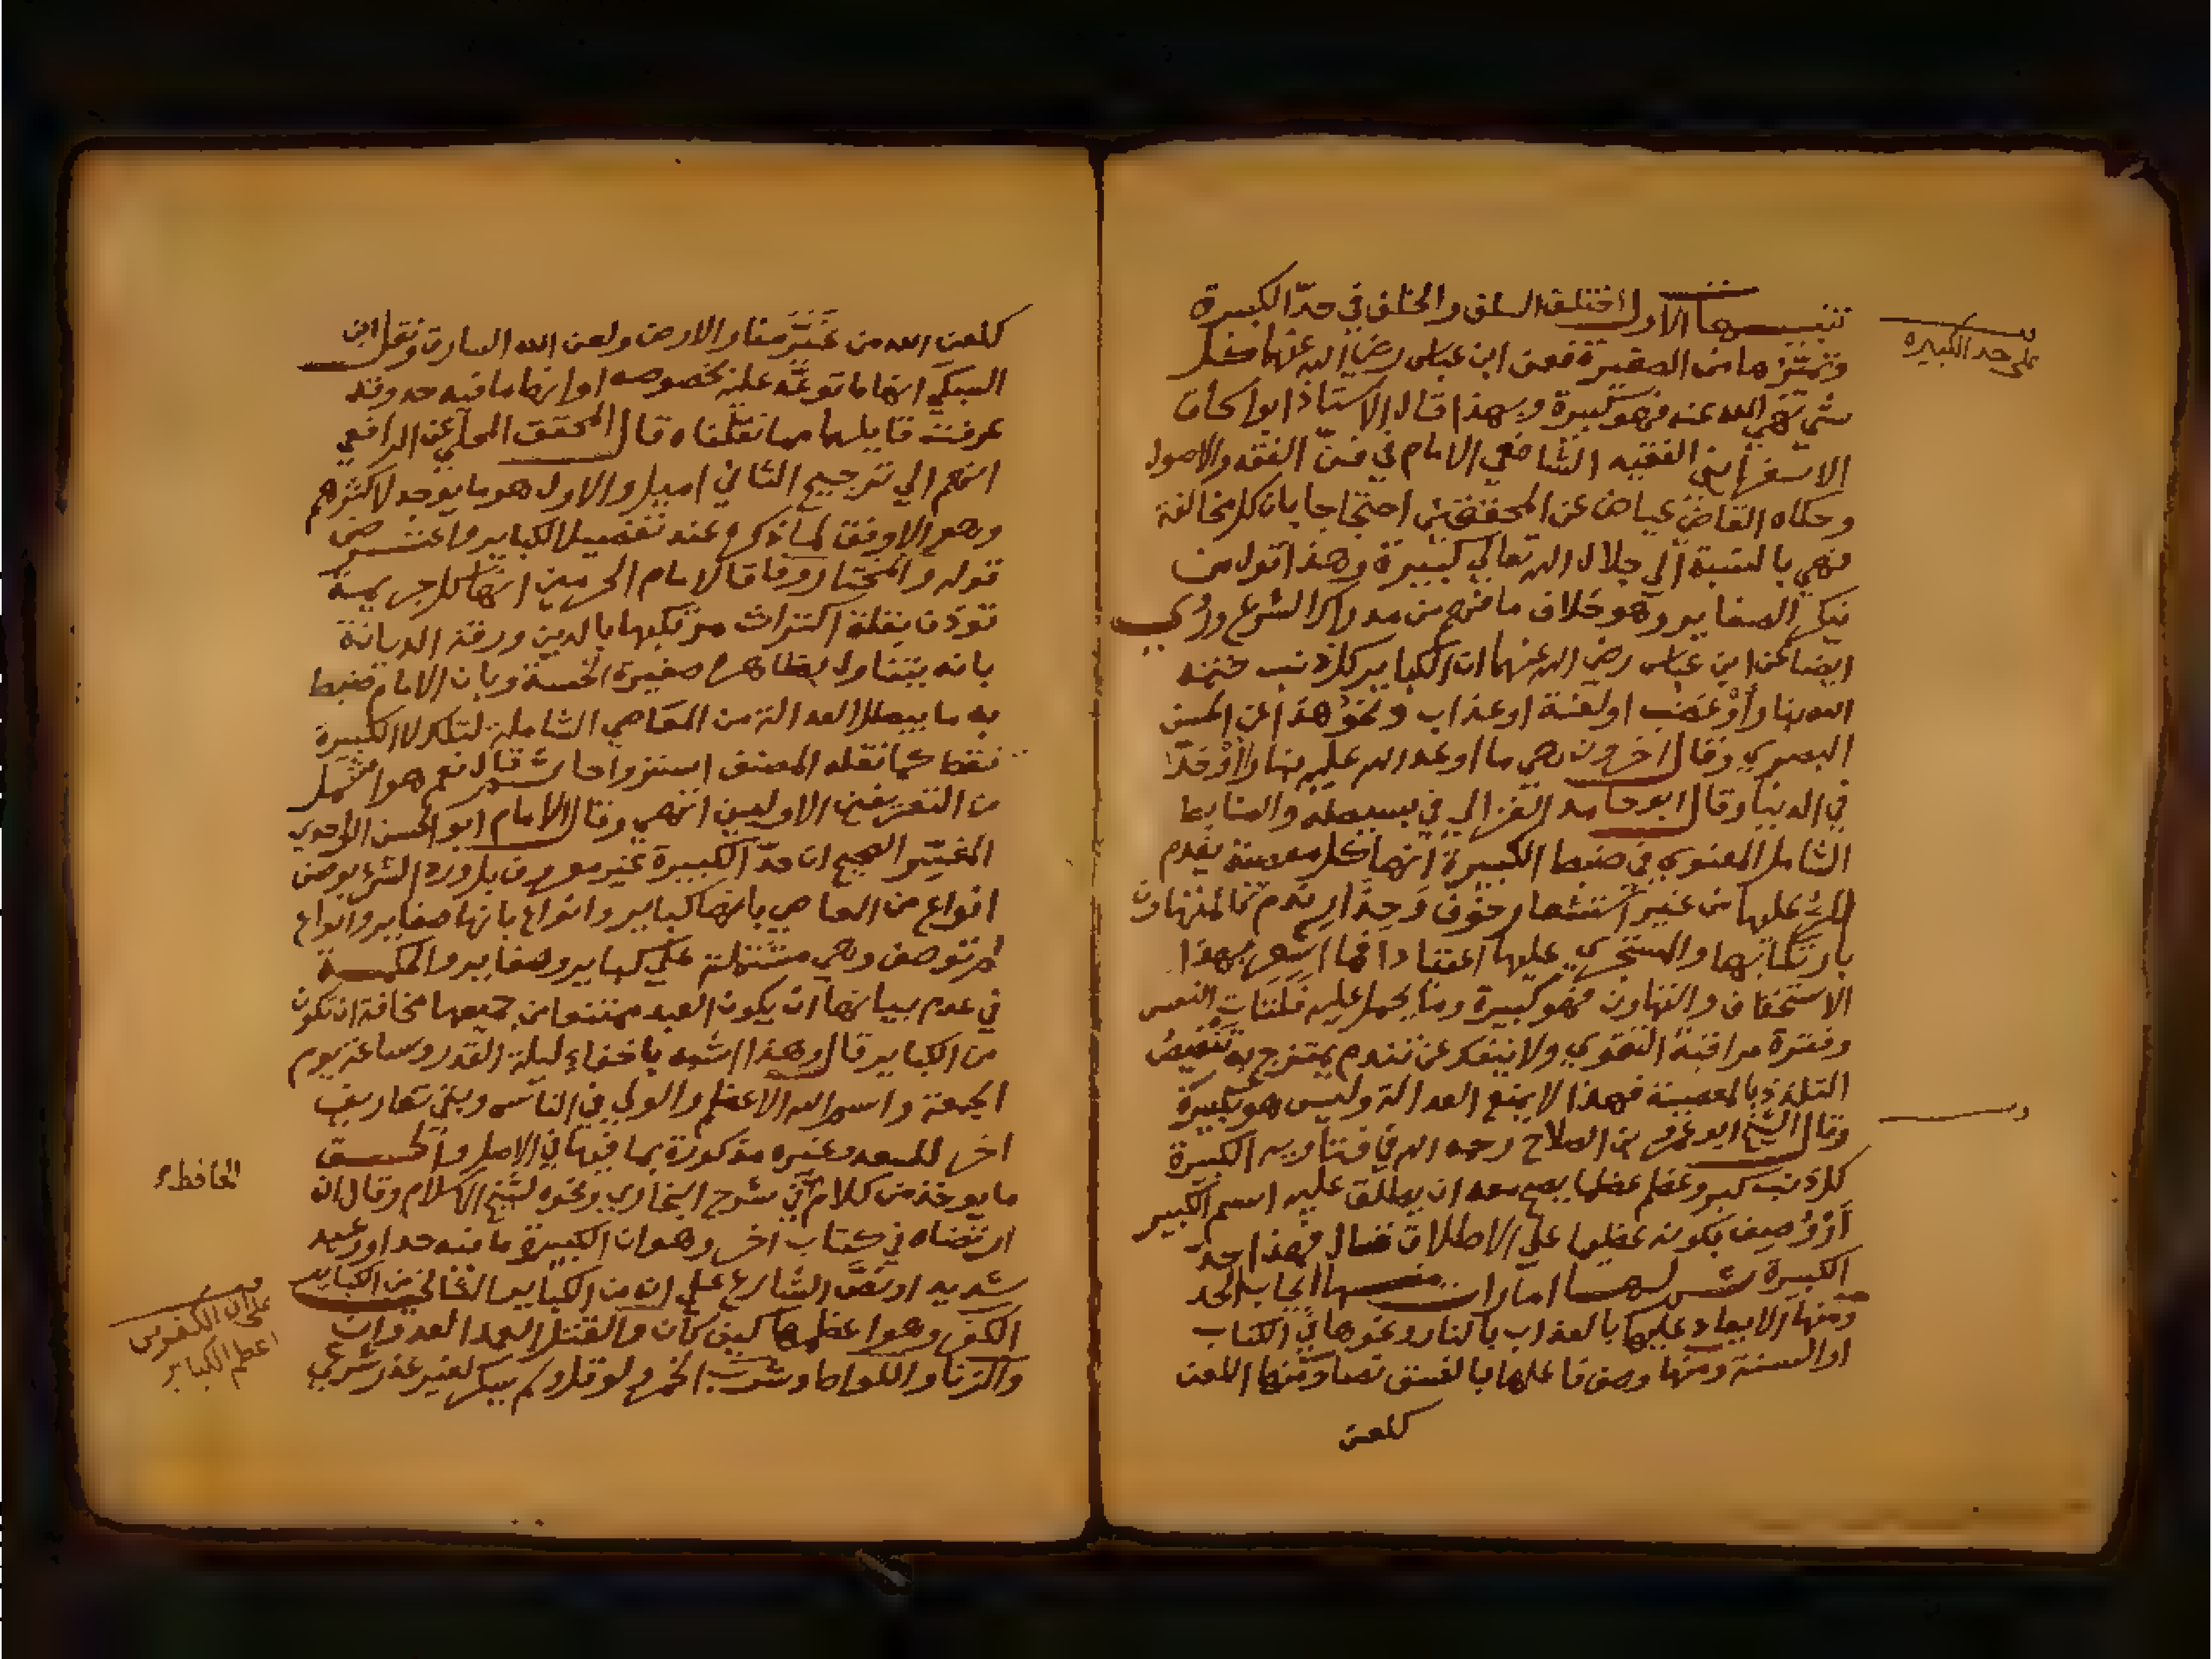 تنبيها الاول اختلف السلف والخلف في حدّ الكبيرة
وتميّزها من الصغيرة فعن ابن عباس رضي الله عنهما كل
شي نهي الله عنه فهو كبيرة وبهذا قال الاستاذ ابو اسحاق
الاسفرايني الفقيه الشافعي الامام في فنّ الفقه والاصول
وحكاه القاضي عياض عن المحققين احتجاجا بان كل مخالفة
فهي بالنسبة الي جلال الله تعالي كبيرة وهذا قول من
ينكر الصغاير وهو خلاف ما فهم من مدرك الشرع وروي
ايضا عن ابن عباس رضي الله عنهما ان الكباير كل ذنب ختمه
الله بنار أوْ غضب او لعنة او عذاب ونحوُ هذا عن الحسن
البصري وقال اخرون هي ما اوعد الله عليه بنار أوْ حدّ
في الدنيا وقال ابو حامد الغزالي في بسيطه والضابط
الشامل المعنوي في ضبط الكبيرة انها كل معصية يقدم
المرُء عليها من غير استشعار خوف وحذار ندم كالمتهاون
بارتكابها والمستجري عليها اعتيادا فما اشعر بهذا
الاستخفاف والتهاون فهو كبيرة وما يحمل عليه فلتات النفس
وفترة مراقبة التقوي ولا ينفك عن تندم يمتزج به تنغيصُ
التلذذ بالمعصية فهذا لا يمنع العدالة وليس هو بكبيرة
وقال الشيخ ابو عمرو بن الصلاح رحمه الله في فتاويه الكبيرة
كل ذنب كبر وعظم عظما يصح معه ان يطلق عليه اسم الكبير
أوْ وُصِف بكونه عظيما علي الاطلاق قال فهذا حدّ
الكبيرة ثم لها امارات منها ايجاب الحد
ومنها الايعاد عليها بالعذاب بالنار ونحوها في الكتاب
او السنة ومنها وصف فاعلها بالفسق نصا ومنها اللعن
كلعن
علي حد الكبيره
كلعن الله من غَيَّرَ منار الارض ولعن الله السارق ونقل ابن
السبكي انها ما توعّد عليه بخصوصه او انها ما فيه حد وقد
عرفت قايلها مما نقلناه قال المحقق المحلي عن الرافعي
انهم الي ترجيح الثاني اميل والاول هو ما يوجد لاكثرهم
وهو الاوفق لما ذكره عند تفصيل الكباير واعترض
قوله والمختار وفاقا لامام الحرمين انها كل جريمة
توذن بقلة اكتراث مرتكبها بالدين ورقة الديانة
بانه يتناول بظاهره صغيرة الخسة وبان الامام ضبط
به ما يبطل العدالة من المعاصي الشاملة لتلك لا الكبيرة
فقط كما نقله المصنف استرواحا ثم قال نعم هو اشمل
من التعريفين الاوليين انتهي وقال الامام ابو الحسن الواحدي
المفسّر الصحيح ان حدّ الكبيرة غير معروف بل ورد الشرع بوصف
انواع من المعاصي بانها كباير وانواع بانها صغاير وانواع
لم توصف وهي مشتملة علي كباير وصغاير والحكمة
في عدم بيانها ان يكون العبد ممتنعا من جميعها مخافة ان تكون
من الكباير قال وهذا اشبه باخفاء ليلة القدر وساعة يوم
الجمعة واسم الله الاعظم والولي في الناس وبقي تعاريف
اخر للسعد وغيره مذكورة بما فيها في الاصل والحق
ما يوخذ من كلام في شرح البخاري ونحوه لشيخ الاسلام وقال ان
ارتضاه في كتاب اخر وهو ان الكبيرة ما فيه حد او وعيد
شديد او نصّ الشارع علي انه من الكباير الثاني من الكباير
الكفر وهو اعظمها كيف كان والقتل العمد العدوان
والزنا واللواط وشرب الخمر ولو قل ولم يسكر لغير عذر شرعي
الحافظ
علي ان الكفر من
اعظم الكباير